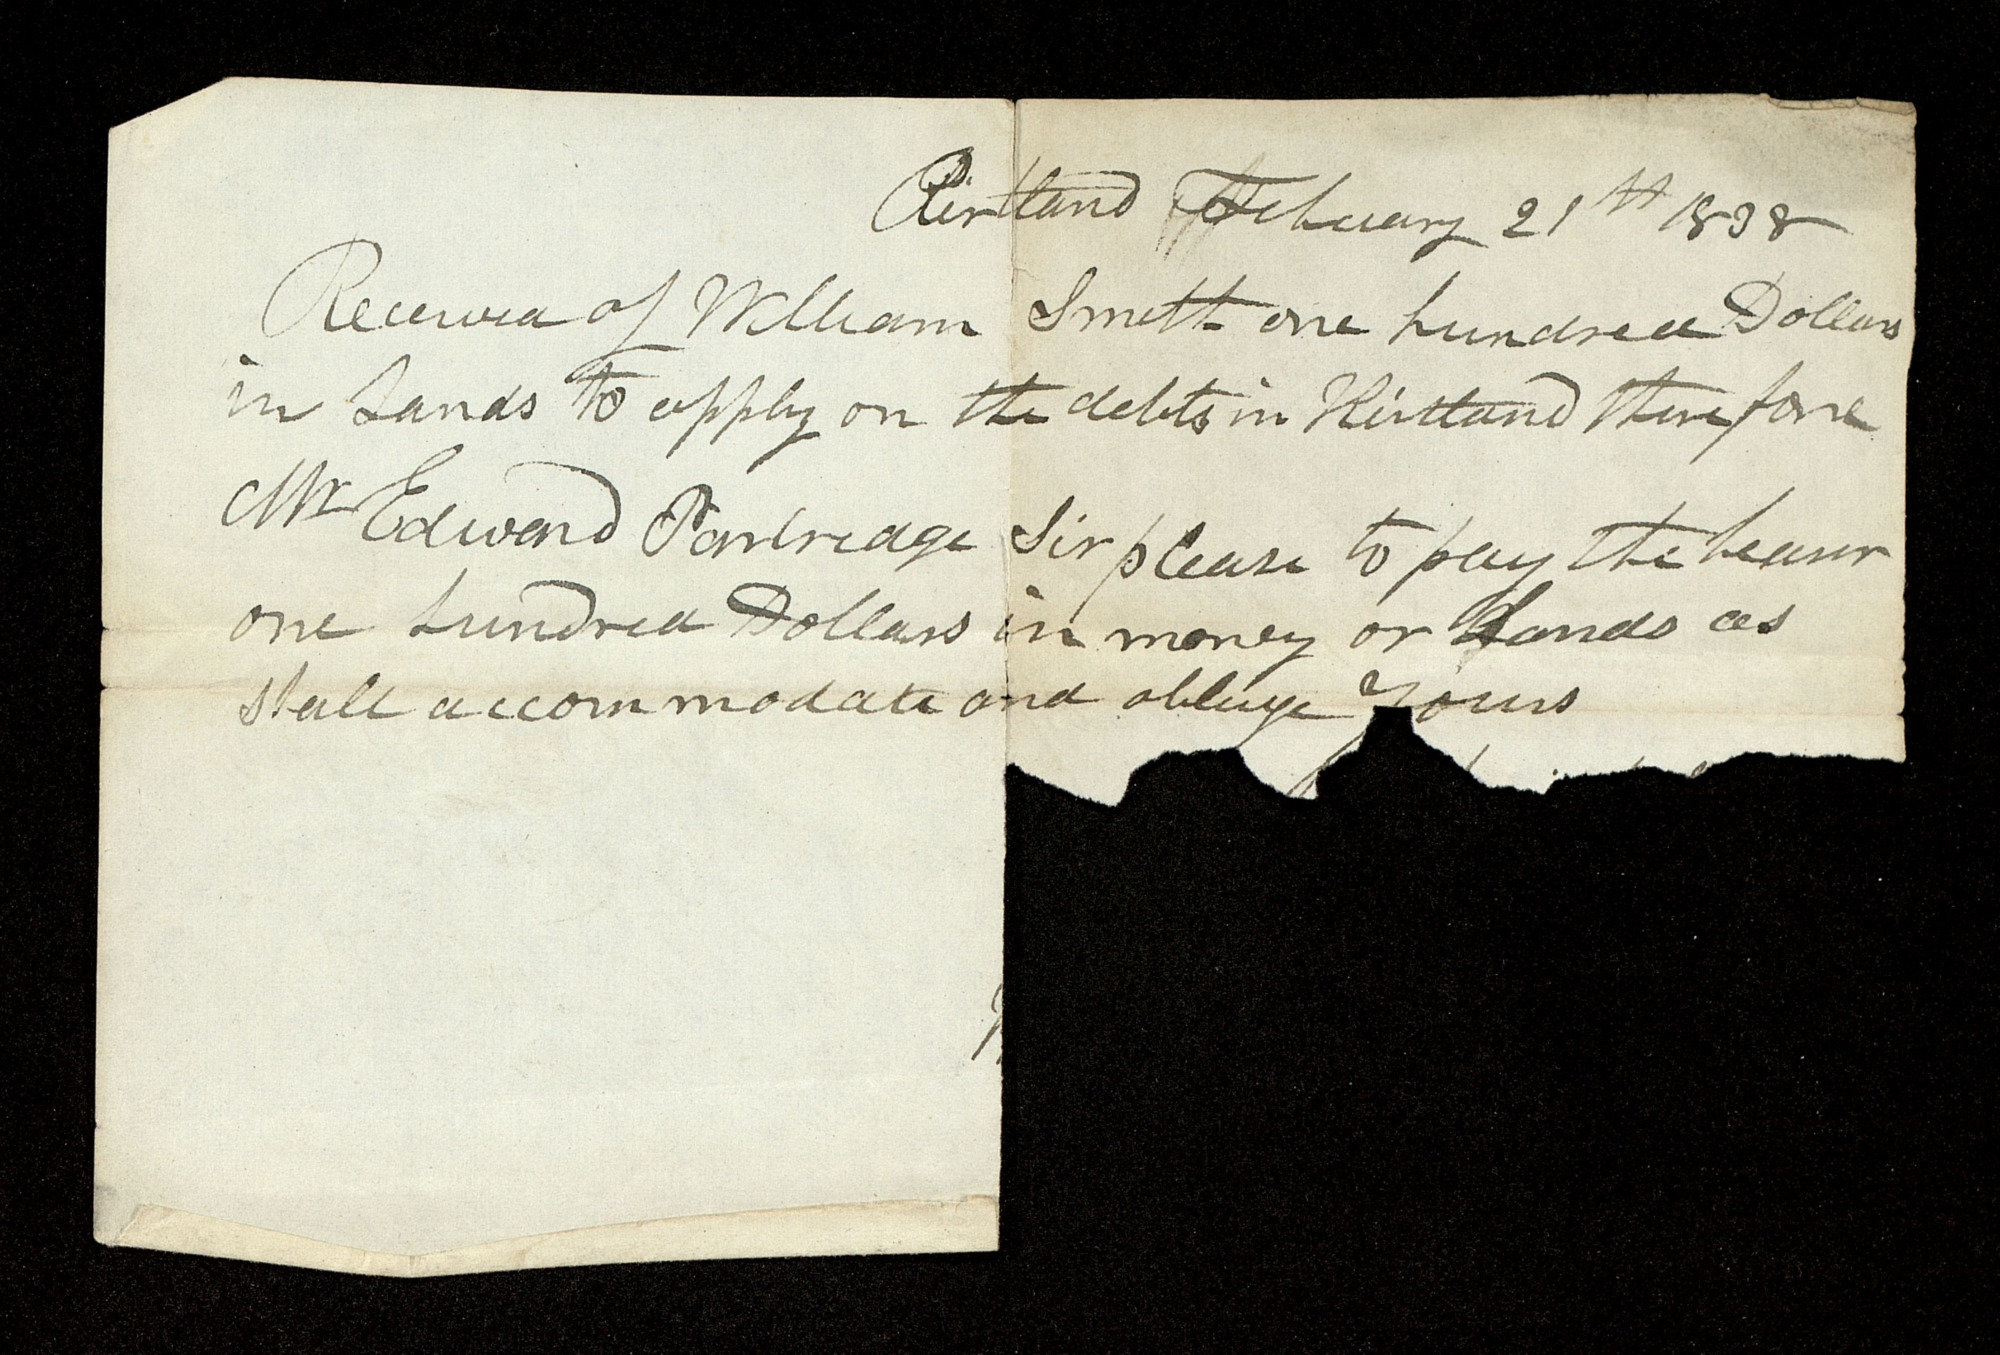 Kirtland February 21th 1838
Received of William Smith one hundred Dollars
in Lands to apply on the debts in Kirtland therefore
Mr Edward Partridge Sir please to pay the bearer
one hundred Dollars in money or Lands as
shall accommodate and obliuge yours